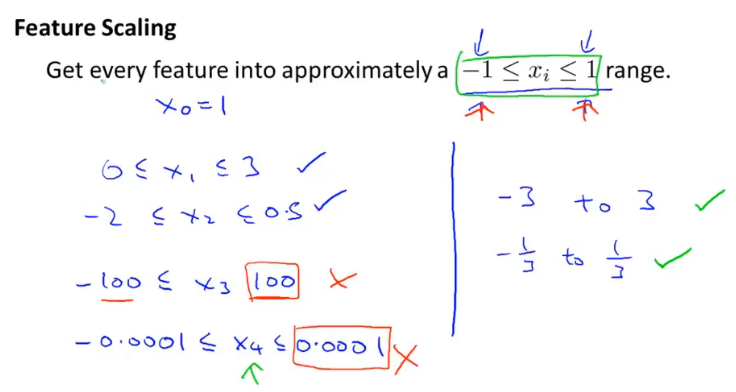 Feature Scaling
Get every feature into approximately a -1 ≤ xᵢ ≤ 1 range.
x₀ = 1
0 ≤ x₁ ≤ 3 ✓
-2 ≤ x₂ ≤ 0.5 ✓
-100 ≤ x₃ 100 ×
-0.0001 ≤ x₄ ≤ 0.0001 ×
-3 to 3 ✓
-1/3 to 1/3 ✓